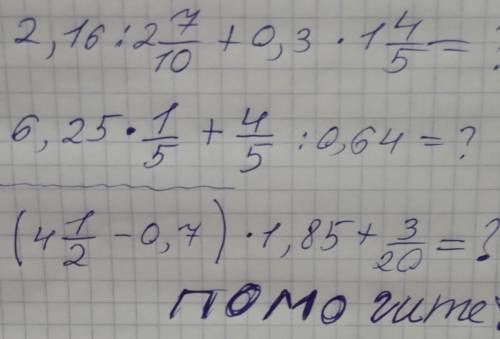 2,16 : 2 7/10 + 0,3 · 1 4/5 = ?
6,25 · 1/5 + 4/5 : 0,64 = ?
(4 1/2 - 0,7) · 1,85 + 3/20 = ?
помогите